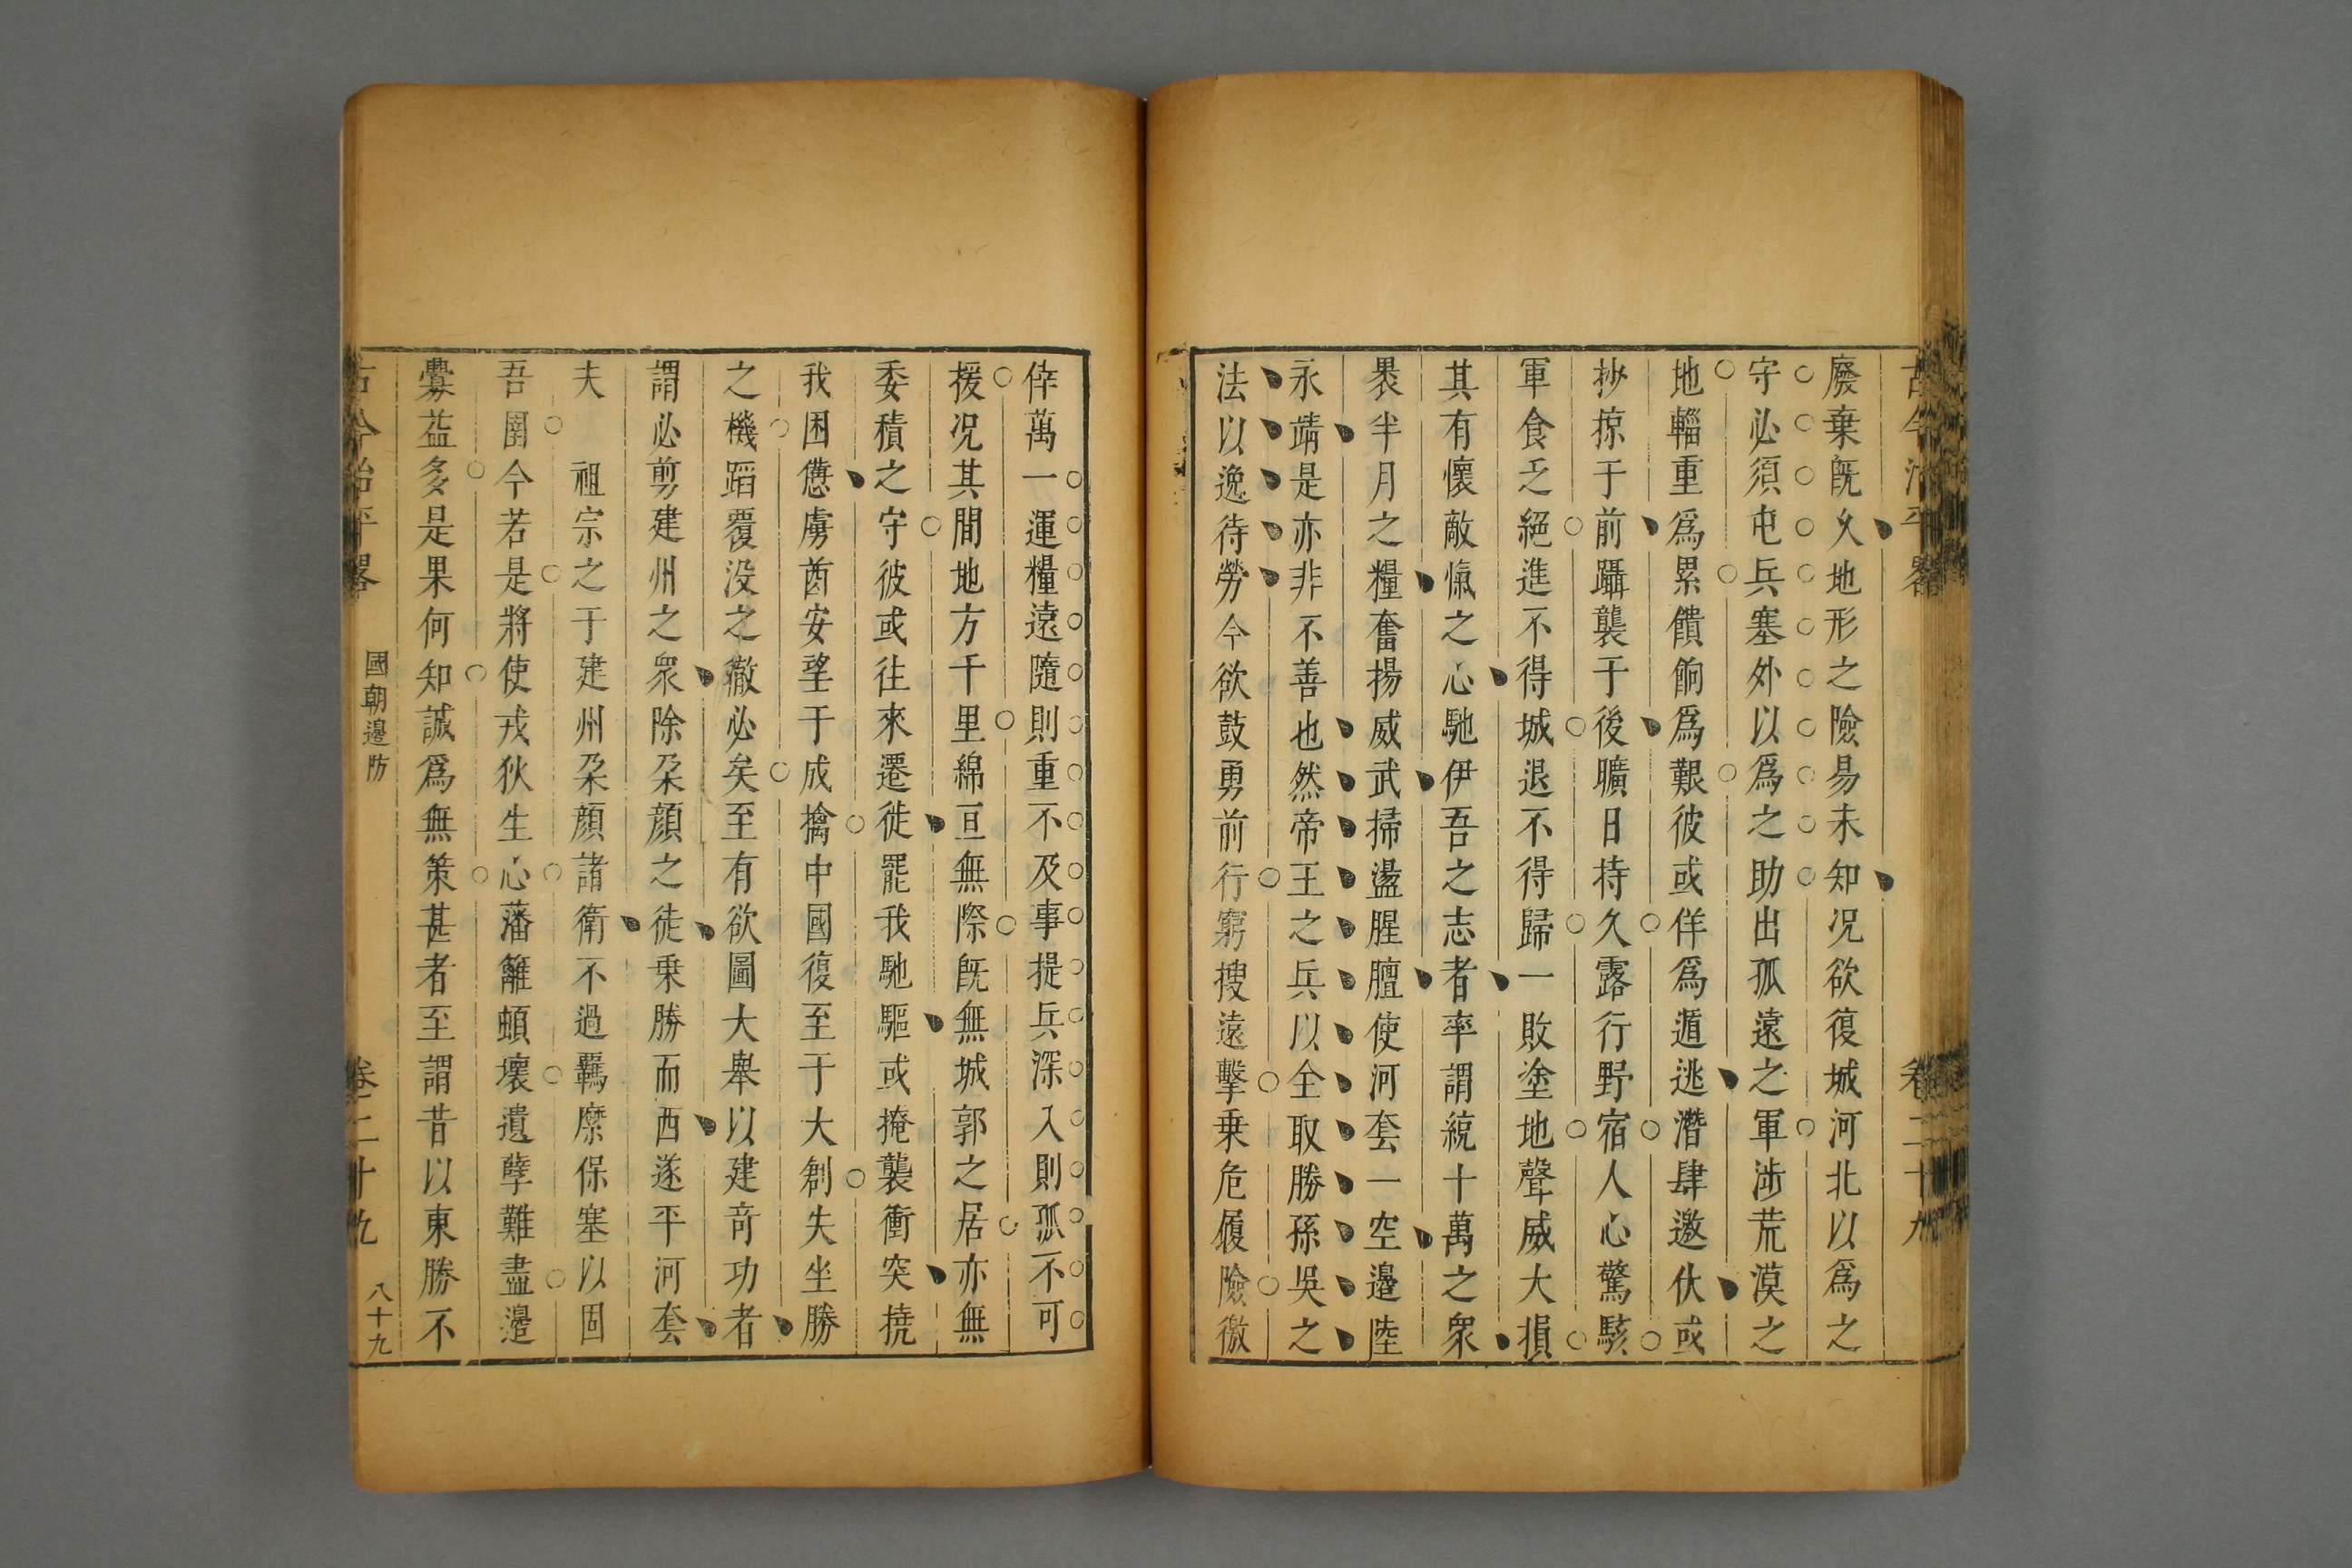 古今治平畧 卷二十九
廢棄旣久地形之險易未知况欲復城河北以爲之
守必須屯兵塞外以爲之助出孤遠之軍涉荒漠之
地輜重爲累饋餉爲艱彼或佯爲遁逃潛肆邀伏或
抄掠于前躡襲于後曠日持久露行野宿人心驚駭
軍食乏絕進不得城退不得歸一敗塗地聲威大損
其有懷敵愾之心馳伊吾之志者率謂統十萬之衆
褁半月之糧奮揚威武掃盪腥膻使河套一空邊陲
永靖是亦非不善也然帝王之兵以全取勝孫吳之
法以逸待勞今欲鼓勇前行窮搜遠擊乗危履險徼
倖萬一運糧遠隨則重不及事提兵深入則孤不可
援况其間地方千里綿亘無際旣無城郭之居亦無
委積之守彼或往來遷徙罷我馳驅或掩襲衝突撓
我困憊虜酋安望于成擒中國復至于大創失坐勝
之機蹈覆没之轍必矣至有欲圖大舉以建竒功者
謂必剪建州之衆除朶顔之徒乗勝而西遂平河套
夫　祖宗之于建州朶顔諸衛不過羈縻保塞以固
吾圉今若是將使戎狄生心藩籬頓壞遺孽難盡邊
釁益多是果何知誠爲無策甚者至謂昔以東勝不
古今治平畧 國朝邊防 卷二十九 八十九